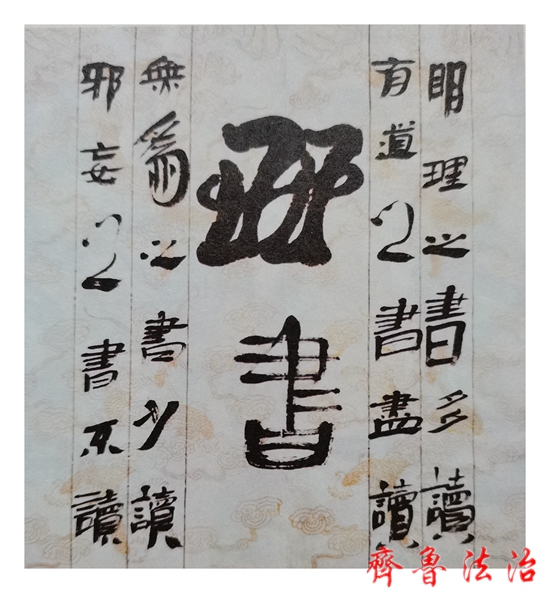 明理之書多讀
有道之書盡讀
書
無爲之書少讀
邪妄之書不讀
齊魯法治